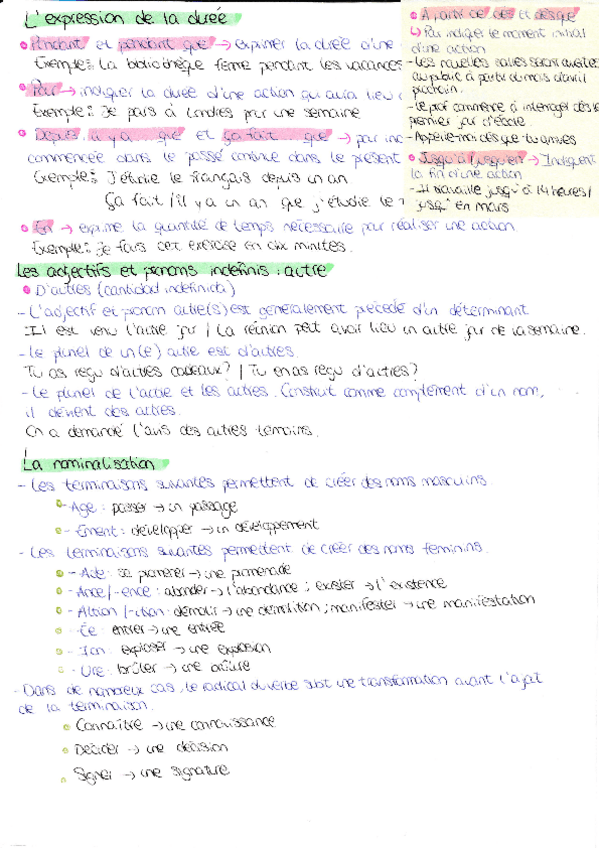 L'expression de la durée
• Pendant et pendant que → exprimer la durée d'une
Exemple: La bibliothèque ferme pendant les vacances
• Pour → indiquer la durée d'une action qui aura lieu
Exemple: Je pars à Londres pour une semaine
• Depuis, il y a ... que et ça fait ... que → pour
commencée dans le passé continue dans le présent
Exemple: J'étudie le français depuis un an
Ça fait / il y a un an que j'étudie le
• En → exprime la quantité de temps nécessaire pour réaliser une action
Exemple: Je fais cet exercice en dix minutes.
• À partir de, dès et dès que
↳ Pour indiquer le moment initial
d'une action
- Les nouvelles salles seront ouvertes
au public à partir du mois d'avril
prochain.
- Le prof commence à interroger dès le
premier jour d'école
- Appelle-moi dès que tu arrives
• Jusqu'à / jusqu'en → Indiquent
la fin d'une action
- Il travaille jusqu'à 14 heures /
jusqu'en mars
Les adjectifs et pronoms indéfinis : autre
• D'autres (cantidad indefinida)
- L'adjectif et pronom autre(s) est generalement précédé d'un déterminant
Il est venu l'autre jour / La réunion peut avoir lieu un autre jour de la semaine.
- Le pluriel de un(e) autre est d'autres.
Tu as reçu d'autres cadeaux? / Tu en as reçu d'autres?
- Le pluriel de l'autre et les autres. Construit comme complément d'un nom,
il devient des autres.
On a demandé l'avis des autres temoins.
La nominalisation
- Les terminaisons suivantes permettent de créer des noms masculins.
• - Age : passer → un passage
• - Ement : développer → un développement
- Les terminaisons suivantes permettent de créer des noms feminins.
• - Ade : se promener → une promenade
• - Ance / -ence : abonder → l'abondance ; exister → l'existence
• - Ation / -ition : démolir → une démolition ; manifester → une manifestation
• - Ée : entrer → une entrée
• - Ion : exploser → une explosion
• - Ure : brûler → une brûlure
- Dans de nombreux cas, le radical du verbe subit une transformation avant l'ajout
de la terminaison.
• Connaître → une connaissance
• Décider → une décision
• Signer → une signature